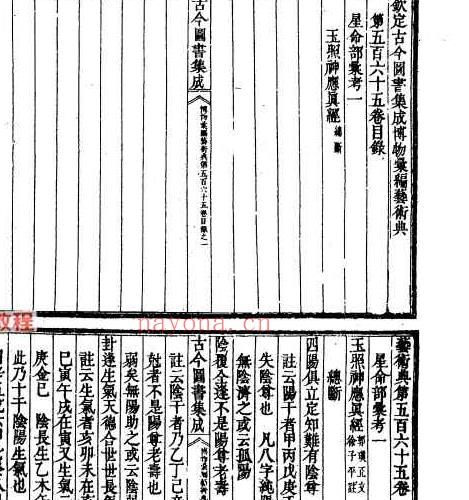 欽定古今圖書集成博物彙編藝術典
第五百六十五卷目錄
星命部彙考一
玉照神應眞經 總斷
古今圖書集成 博物彙編藝術典第五百六十五卷目錄之一
藝術典第五百六十五卷
星命部彙考一
玉照神應眞經 郭璞正文 徐子平註
總斷
四陽俱立定知難有陰尊
註云陽干者甲丙戊庚
失陰尊也 凡八字純
無陰濟之或云孤陽
陰覆全逢不是陽尊老壽
古今圖書集成
註云陰干者乃乙丁己
尅者不是陽尊老壽也
弱矣無陽助之或云陰
封逢生氣天德合世世長
註云生氣者亥卯未在
巳寅午戌在寅又生氣
庚金巳 陰長生乙木午
此乃十干陰陽生氣也
教程
nayona.cn